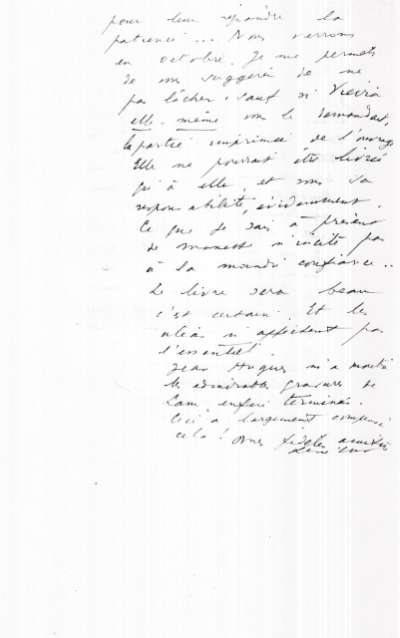 pour leur répondre la
patience... Nous verrons
en octobre. Je me permets
de vous suggérer de ne
pas lâcher, sauf si Vieira
elle-même vous le demandait,
la partie imprimée de l'ouvrage
Elle ne pourrait être livrée
qu'à elle, et sous sa
responsabilité, évidemment.
Ce que je sais à présent
de n'incite pas
à la moindre confiance..
Le livre sera beau
c'est certain. Et les
aléas n'affectent pas
l'essentiel.
Jean Hugues m'a montré
les admirables gravures de
Lam enfin terminées.
Ceci a largement compensé
cela! fidèles amitiés